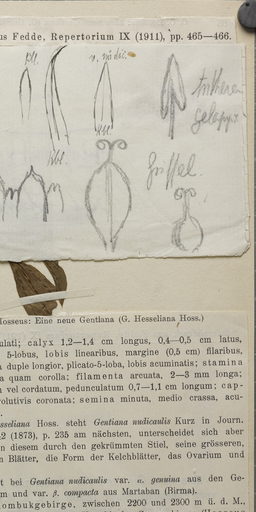 us Fedde, Repertorium IX (1911), pp. 465—466.
Kbl.
Kbl.
Griffel.
Hosseus: Eine neue Gentiana (G. Hesseliana Hoss.)
ulati; calyx 1,2—1,4 cm longus, 0,4—0,5 cm latus,
5-lobus, lobis linearibus, margine (0,5 cm) filaribus,
duple longior, plicato-5-loba, lobis acuminatis; stamina
a quam corolla; filamenta arcuata, 2—3 mm longa;
vel cordatum, pedunculatum 0,7—1,1 cm longum; cap-
volutivis coronata; semina minuta, medio crassa, acu-
sseliana Hoss. steht Gentiana nudicaulis Kurz in Journ.
2 (1873), p. 235 am nächsten, unterscheidet sich aber
n diesem durch den gekrümmten Stiel, seine grösseren,
n Blätter, die Form der Kelchblätter, das Ovarium und
t bei Gentiana nudicaulis var. α. genuina aus den Ge-
m und var. β. compacta aus Martaban (Birma).
ombukgebirge, zwischen 2200 und 2300 m ü. d. M.,